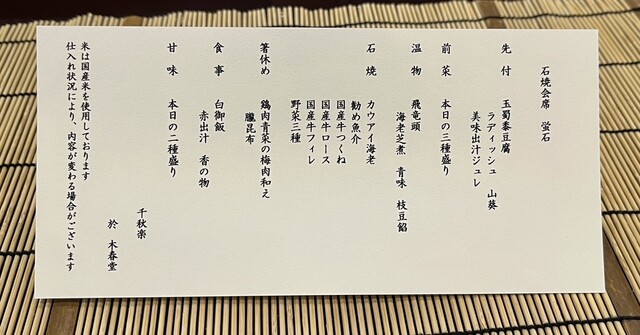 石焼会席　蛍石
先付　玉蜀黍豆腐
ラディッシュ　山葵
美味出汁ジュレ
前菜　本日の三種盛り
温物　飛竜頭
海老芝煮　青味　枝豆餡
石焼　カウアイ海老
勧め魚介
国産牛つくね
国産牛ロース
国産牛フィレ
野菜三種
箸休め　鶏肉青菜の梅肉和え
朧昆布
食事　白御飯
赤出汁　香の物
甘味　本日の二種盛り
千秋楽
於　木春堂
米は国産米を使用しております
仕入れ状況により、内容が変わる場合がございます